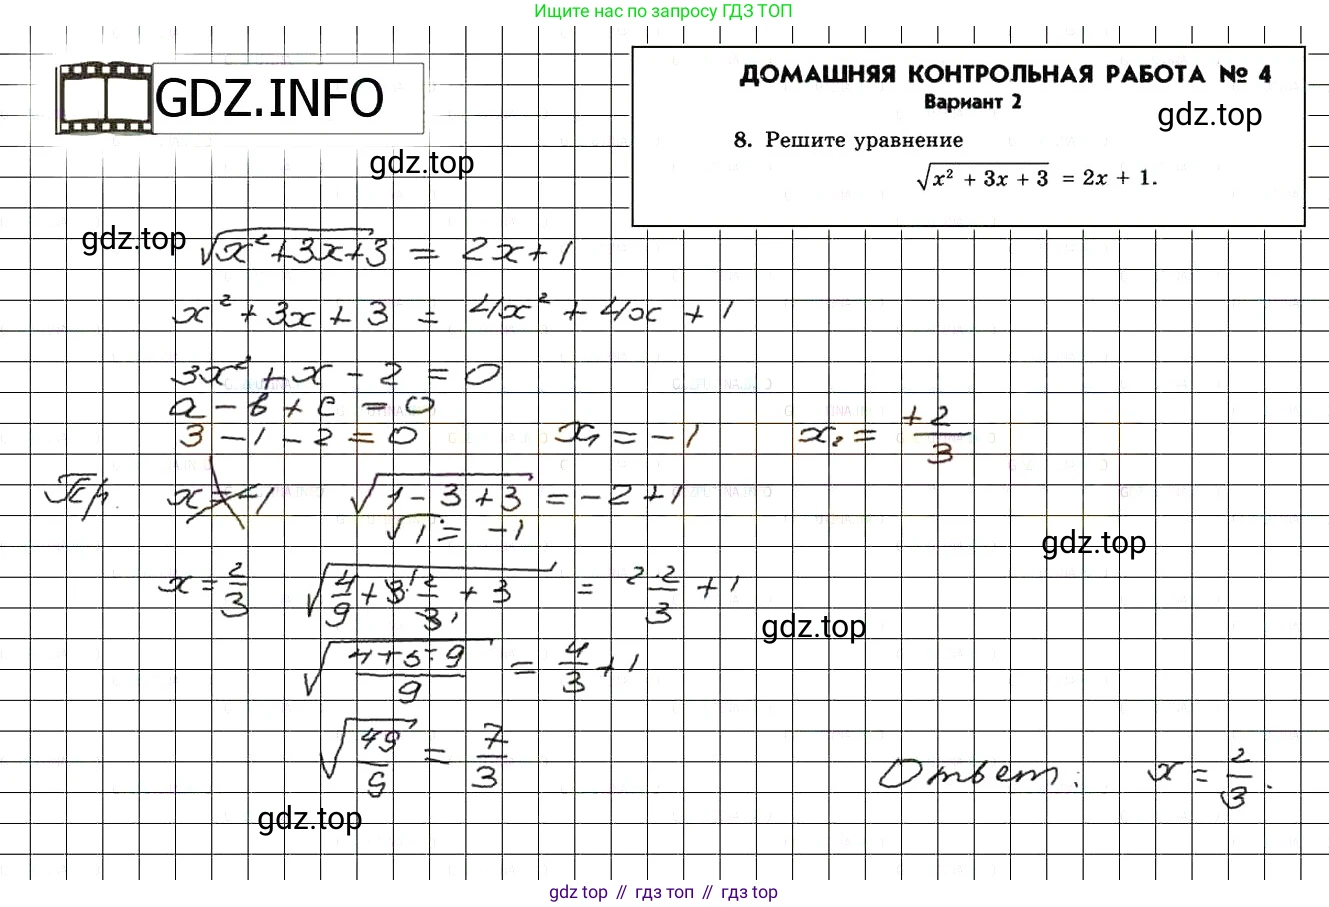 Ищите нас по запросу ГДЗ ТОП
GDZ.INFO
ДОМАШНЯЯ КОНТРОЛЬНАЯ РАБОТА № 4
Вариант 2
gdz.top
8. Решите уравнение
√(x² + 3x + 3) = 2x + 1.
gdz.top
gdz.top
√(x²+3x+3) = 2x+1
x² + 3x + 3 = 4x² + 4x + 1
3x² + x - 2 = 0
a - b + c = 0
3 - 1 - 2 = 0 x₁ = -1 x₂ = +2/3
Пр. x = -1 √(1 - 3 + 3) = -2 + 1
√1 = -1
gdz.top
x = 2/3 √(4/9 + 3·2/3 + 3) = 2·2/3 + 1
gdz.top
= 4/3 + 1
√(49/9) = 7/3
Ответ: x = 2/3.
gdz.top
gdz top // гдз топ // gdz top